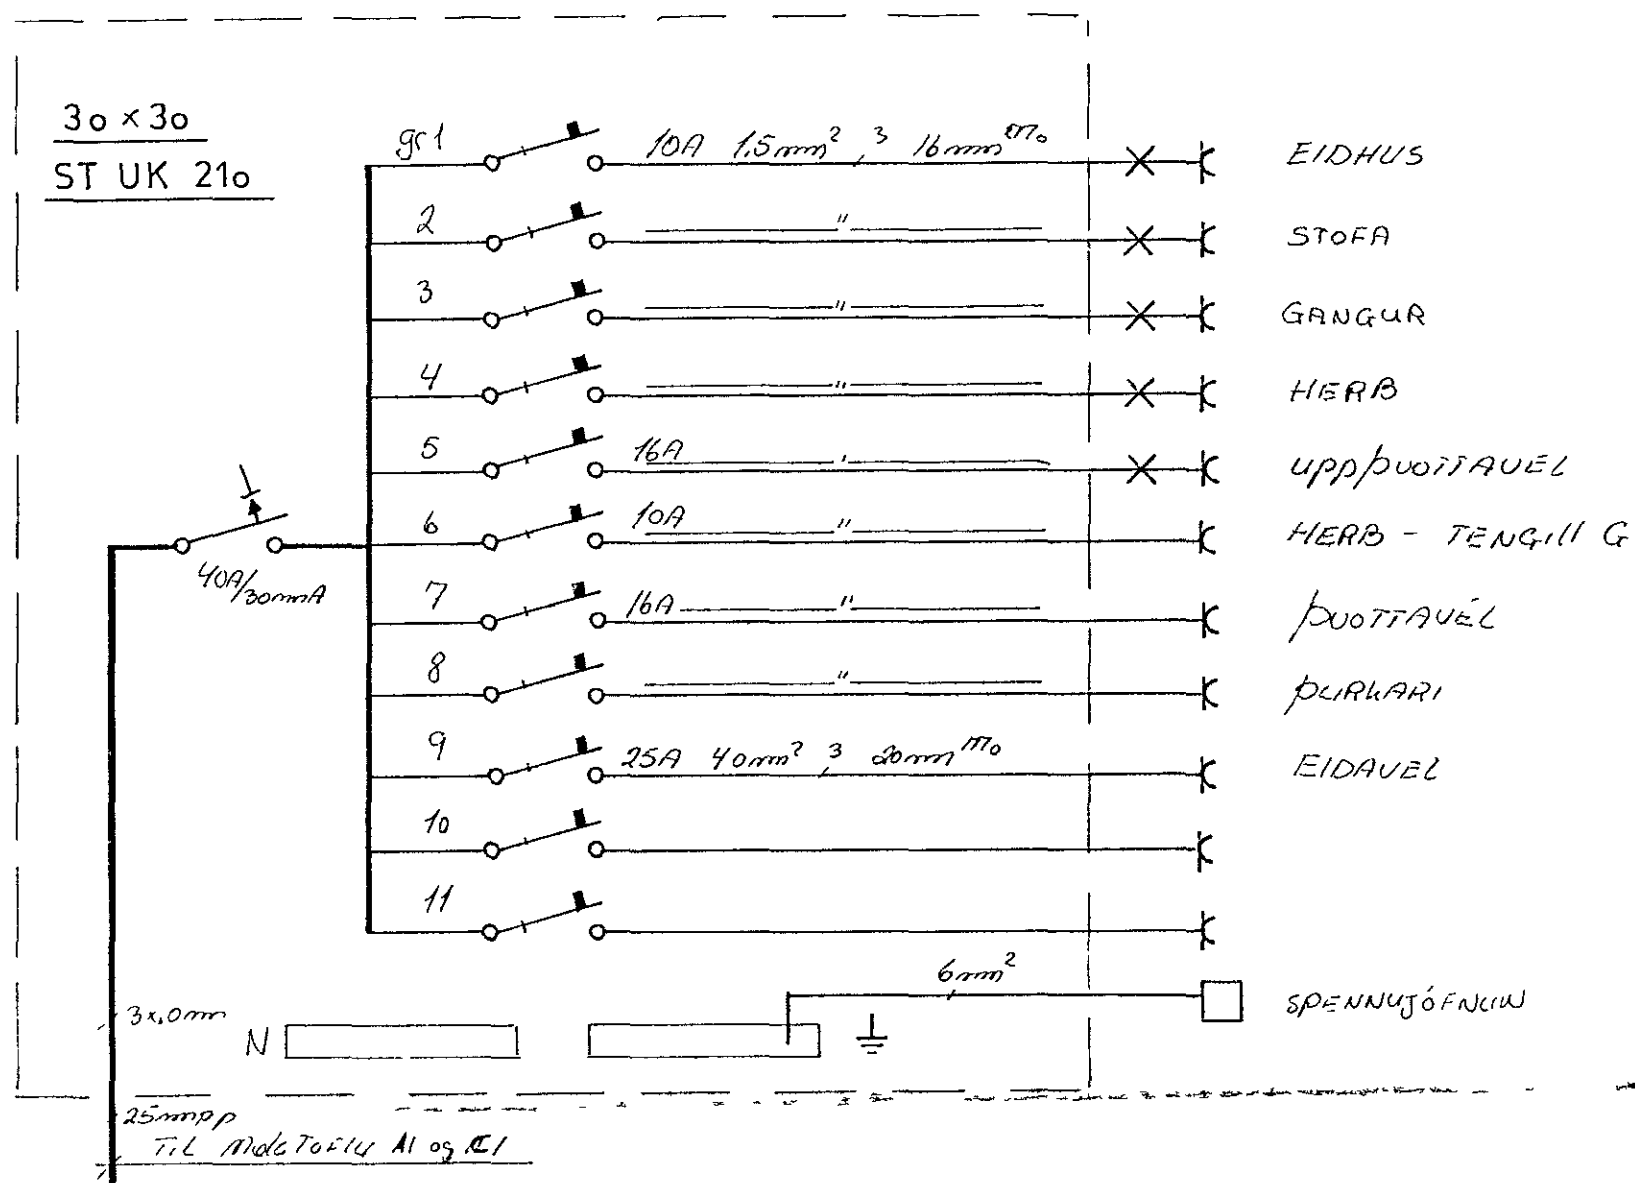 3o × 3o
ST UK 21o
gr 1 10A 1.5mm² , 3 16mm mo EIDHUS
2 " STOFA
3 " GANGUR
4 " HERB
5 16A " UPPÞVOTTAVÉL
6 10A " HERB - TENGIll G
40A/30mmA
7 16A " ÞVOTTAVÉL
8 " ÞURKARI
9 25A 40mm² , 3 20mm mo EIDAVEL
10
11
6mm² SPENNUJÓFNUN
3x,0mm
N
25mmpp
TIL Töflu A1 og